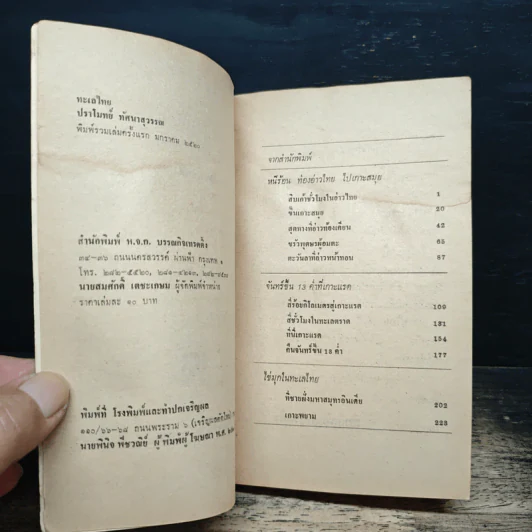 ทะเลไทย
ปราโมทย์ ทัศนาสุวรรณ
พิมพ์รวมเล่มครั้งแรก มกราคม ๒๕๒๑
สำนักพิมพ์ ห.จ.ก. บรรณกิจเทรดดิ้ง
๓๔-๓๖ ถนนนครสวรรค์ ผ่านฟ้า กรุงเทพ ๑
โทร. ๒๘๒-๕๕๒๐,
นายสมศักดิ์ เตชะเกษม ผู้จัดพิมพ์จำหน่าย
ราคาเล่มละ ๑๐ บาท
พิมพ์ที่ โรงพิมพ์และทำปกเจริญผล
๑๑๐/๖๗-๖๘ ถนนพระราม ๖
นายพินิจ ผู้พิมพ์ผู้โฆษณา พ.ศ.
จากสำนักพิมพ์
หนีร้อน ท่องอ่าวไทย ไปเกาะสมุย
สิบเก้าชั่วโมงในอ่าวไทย 1
ขึ้นเกาะสมุย 20
สุดทางที่อ่าวท้องเตียน 42
ขรัวพุดษรผู้อมตะ 65
ตะวันลาที่อ่าวหน้าทอน 87
จันทร์ขึ้น 13 ค่ำที่เกาะแรด
สี่ร้อยกิโลเมตรสู่เกาะแรด 109
สี่ชั่วโมงในทะเลตราด 131
ที่นี่เกาะแรด 154
คืนจันทร์ขึ้น 13 ค่ำ 177
ไข่มุกในทะเลไทย
ที่ชายฝั่งมหาสมุทรอินเดีย 202
เกาะพยาม 223